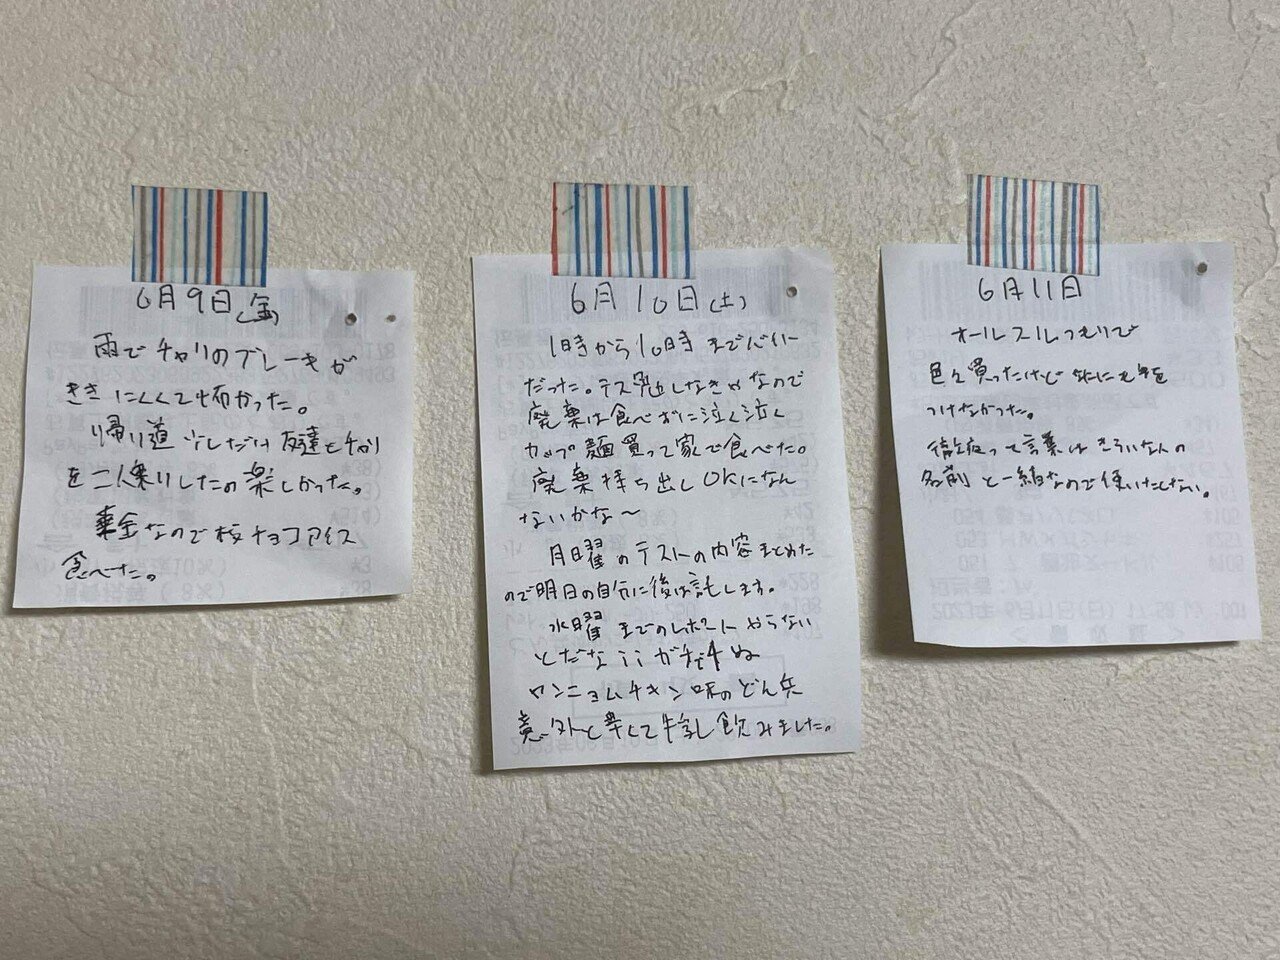 6月9日(金)
雨でチャリのブレーキが
ききにくくて怖かった。
帰り道少しだけ友達とチャリ
を二人乗りしたの楽しかった。
華金なので板チョコアイス
食べた。
6月10日(土)
1時から10時までバイト
だった。テス勉しなきゃなので
廃棄は食べずに泣く泣く
カップ麺買って家で食べた。
廃棄持ち出しOKになん
ないかな〜
月曜のテストの内容まとめた
ので明日の自分に後は託します。
水曜までのレポートやらない
とだな;; ガチで
ヤンニョムチキン味のどん兵
意外と辛くて牛乳飲みました。
6月11日
オールスルつもりで
色々買ったけど 手を
つけなかった。
徹夜って言葉はきらいな人の
名前と一緒なので使いたくない。